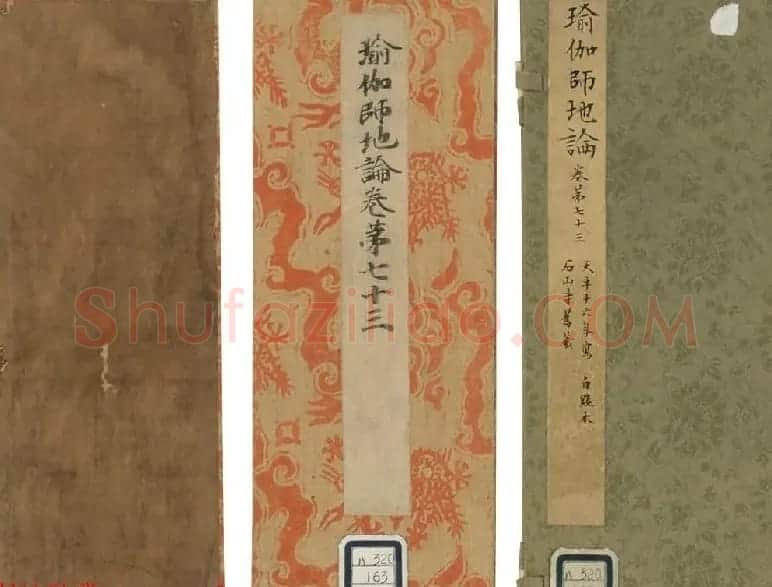 瑜伽師地論卷苐七十三
瑜伽師地論 卷苐七十三
天平十六年寫 白點本
石山寺舊藏
Shufaziliao.COM
320
163
320